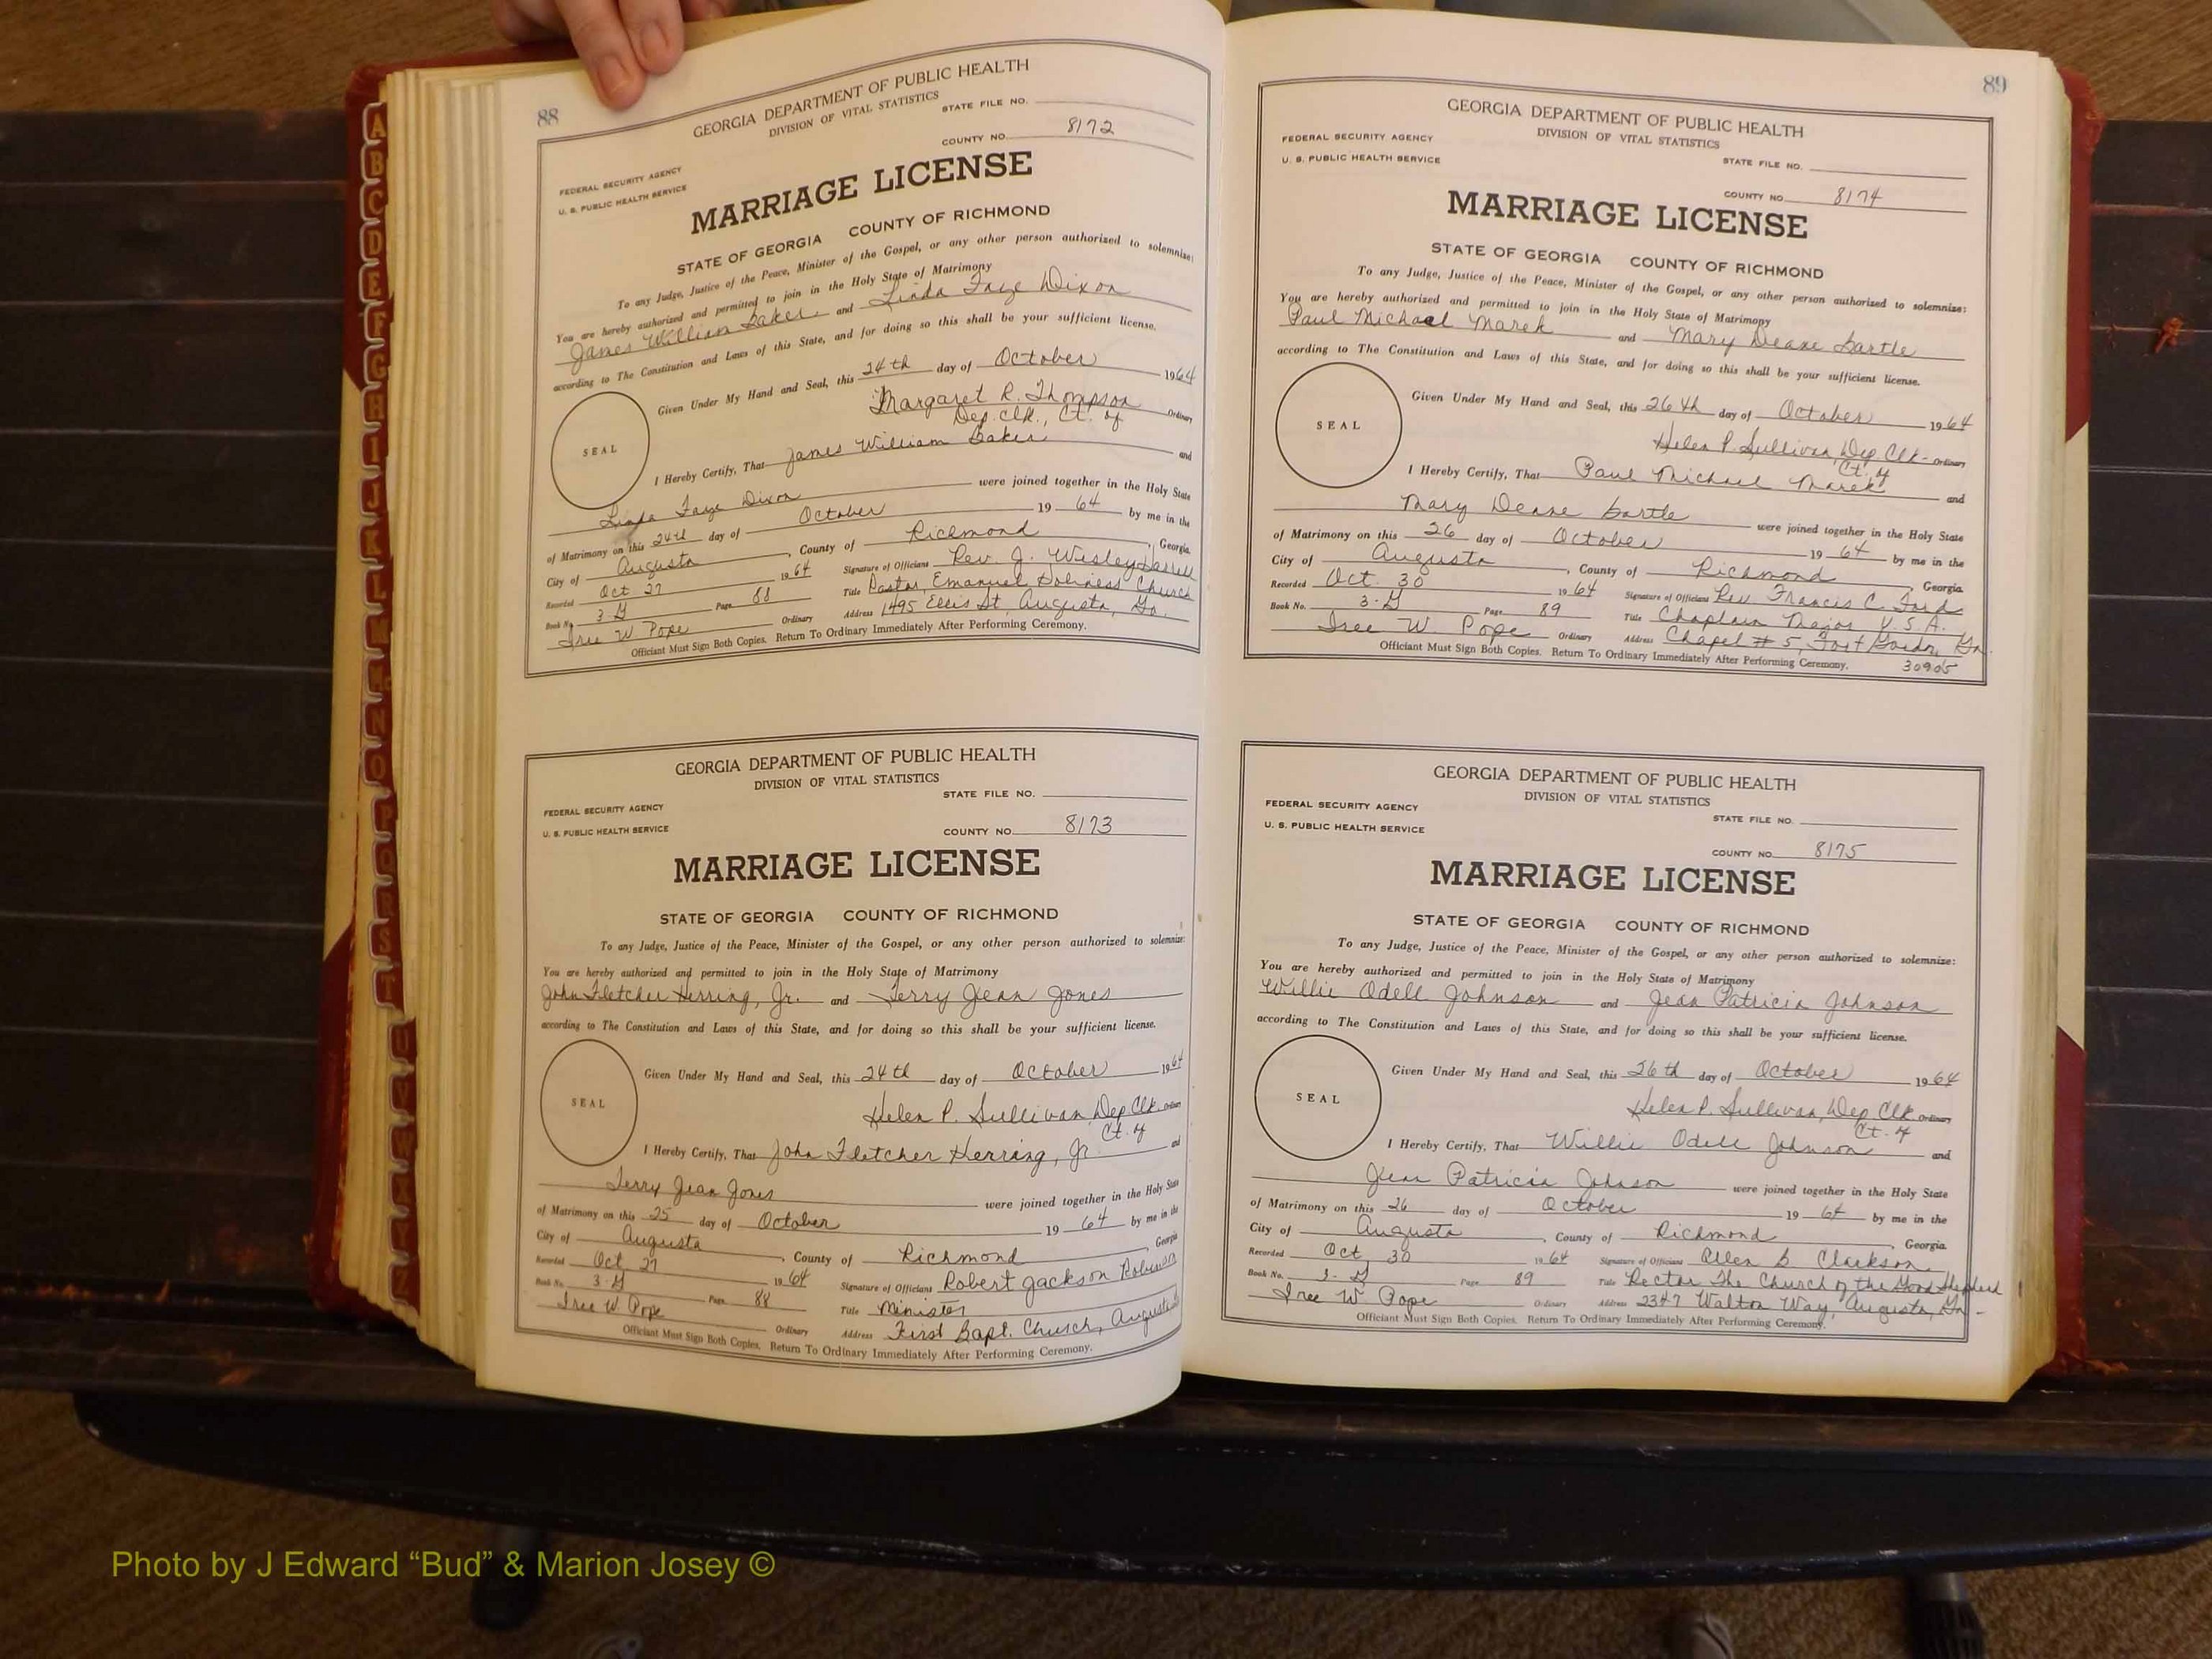 88
GEORGIA DEPARTMENT OF PUBLIC HEALTH
DIVISION OF VITAL STATISTICS
STATE FILE NO.
COUNTY NO. 8172
FEDERAL SECURITY AGENCY
U. S. PUBLIC HEALTH SERVICE
MARRIAGE LICENSE
STATE OF GEORGIA COUNTY OF RICHMOND
To any Judge, Justice of the Peace, Minister of the Gospel, or any other person authorized to solemnize:
You are hereby authorized and permitted to join in the Holy State of Matrimony
James William Baker and Linda Faye Dixon
according to The Constitution and Laws of this State, and for doing so this shall be your sufficient license.
Given Under My Hand and Seal, this 24th day of October 1964
Margaret R. Thompson Ordinary
Dep. Clk., Ct. of
SEAL
I Hereby Certify, That James William Baker and
Linda Faye Dixon were joined together in the Holy State
of Matrimony on this 24th day of October 19 64 by me in the
City of Augusta, County of Richmond, Georgia.
Recorded Oct. 27 1964 Signature of Officiant Rev. J. Wesley
Book No. 3-G Page 88 Title Pastor, Emanuel Holiness Church
Iree W Pope Ordinary Address 1495 Ellis St, Augusta, Ga.
Officiant Must Sign Both Copies. Return To Ordinary Immediately After Performing Ceremony.
GEORGIA DEPARTMENT OF PUBLIC HEALTH
DIVISION OF VITAL STATISTICS
STATE FILE NO.
FEDERAL SECURITY AGENCY
U. S. PUBLIC HEALTH SERVICE
COUNTY NO. 8173
MARRIAGE LICENSE
STATE OF GEORGIA COUNTY OF RICHMOND
To any Judge, Justice of the Peace, Minister of the Gospel, or any other person authorized to solemnize:
You are hereby authorized and permitted to join in the Holy State of Matrimony
John Fletcher Herring, Jr. and Terry Jean Jones
according to The Constitution and Laws of this State, and for doing so this shall be your sufficient license.
Given Under My Hand and Seal, this 24th day of October 1964
Helen P. Sullivan, Dep Clk. Ordinary
Ct. of
SEAL
I Hereby Certify, That John Fletcher Herring, Jr. and
Terry Jean Jones were joined together in the Holy State
of Matrimony on this 25 day of October 19 64 by me in the
City of Augusta, County of Richmond, Georgia
Recorded Oct. 27 1964 Signature of Officiant Robert Jackson Robinson
Book No. 3-G Page 88 Title Minister
Iree W. Pope Ordinary Address First Bapt. Church, Augusta
Officiant Must Sign Both Copies. Return To Ordinary Immediately After Performing Ceremony.
89
GEORGIA DEPARTMENT OF PUBLIC HEALTH
DIVISION OF VITAL STATISTICS
FEDERAL SECURITY AGENCY
U. S. PUBLIC HEALTH SERVICE
STATE FILE NO.
COUNTY NO. 8174
MARRIAGE LICENSE
STATE OF GEORGIA COUNTY OF RICHMOND
To any Judge, Justice of the Peace, Minister of the Gospel, or any other person authorized to solemnize:
You are hereby authorized and permitted to join in the Holy State of Matrimony
Paul Michael Marek and Mary Deane Bartle
according to The Constitution and Laws of this State, and for doing so this shall be your sufficient license.
Given Under My Hand and Seal, this 26th day of October 1964
Helen P. Sullivan, Dep. Clk- Ordinary
Ct. of
SEAL
I Hereby Certify, That Paul Michael Marek and
Mary Deane Bartle were joined together in the Holy State
of Matrimony on this 26 day of October 19 64 by me in the
City of Augusta, County of Richmond, Georgia.
Recorded Oct. 30 1964 Signature of Officiant Rev Francis C. Ford
Book No. 3-G Page 89 Title Chaplain Major U.S.A.
Iree W Pope Ordinary Address Chapel # 5, Fort Gordon, Ga.
30905
Officiant Must Sign Both Copies. Return To Ordinary Immediately After Performing Ceremony.
GEORGIA DEPARTMENT OF PUBLIC HEALTH
DIVISION OF VITAL STATISTICS
FEDERAL SECURITY AGENCY
STATE FILE NO.
U. S. PUBLIC HEALTH SERVICE
COUNTY NO. 8175
MARRIAGE LICENSE
STATE OF GEORGIA COUNTY OF RICHMOND
To any Judge, Justice of the Peace, Minister of the Gospel, or any other person authorized to solemnize:
You are hereby authorized and permitted to join in the Holy State of Matrimony
Willie Odell Johnson and Jean Patricia Johnson
according to The Constitution and Laws of this State, and for doing so this shall be your sufficient license.
Given Under My Hand and Seal, this 26th day of October 1964
Helen P. Sullivan, Dep Clk. Ordinary
Ct. of
SEAL
I Hereby Certify, That Willie Odell Johnson and
Jean Patricia Johnson were joined together in the Holy State
of Matrimony on this 26 day of October 19 64 by me in the
City of Augusta, County of Richmond, Georgia.
Recorded Oct 30 1964 Signature of Officiant Allen B Clarkson
Book No. 3-G Page 89 Title Rector The Church of the Good Shepherd
Iree W. Pope Ordinary Address 2347 Walton Way, Augusta, Ga-
Officiant Must Sign Both Copies. Return To Ordinary Immediately After Performing Ceremony.
A
B
C
D
E
F
G
H
I
J
K
L
M
N
O
P
Q
R
S
T
Photo by J Edward “Bud” & Marion Josey ©